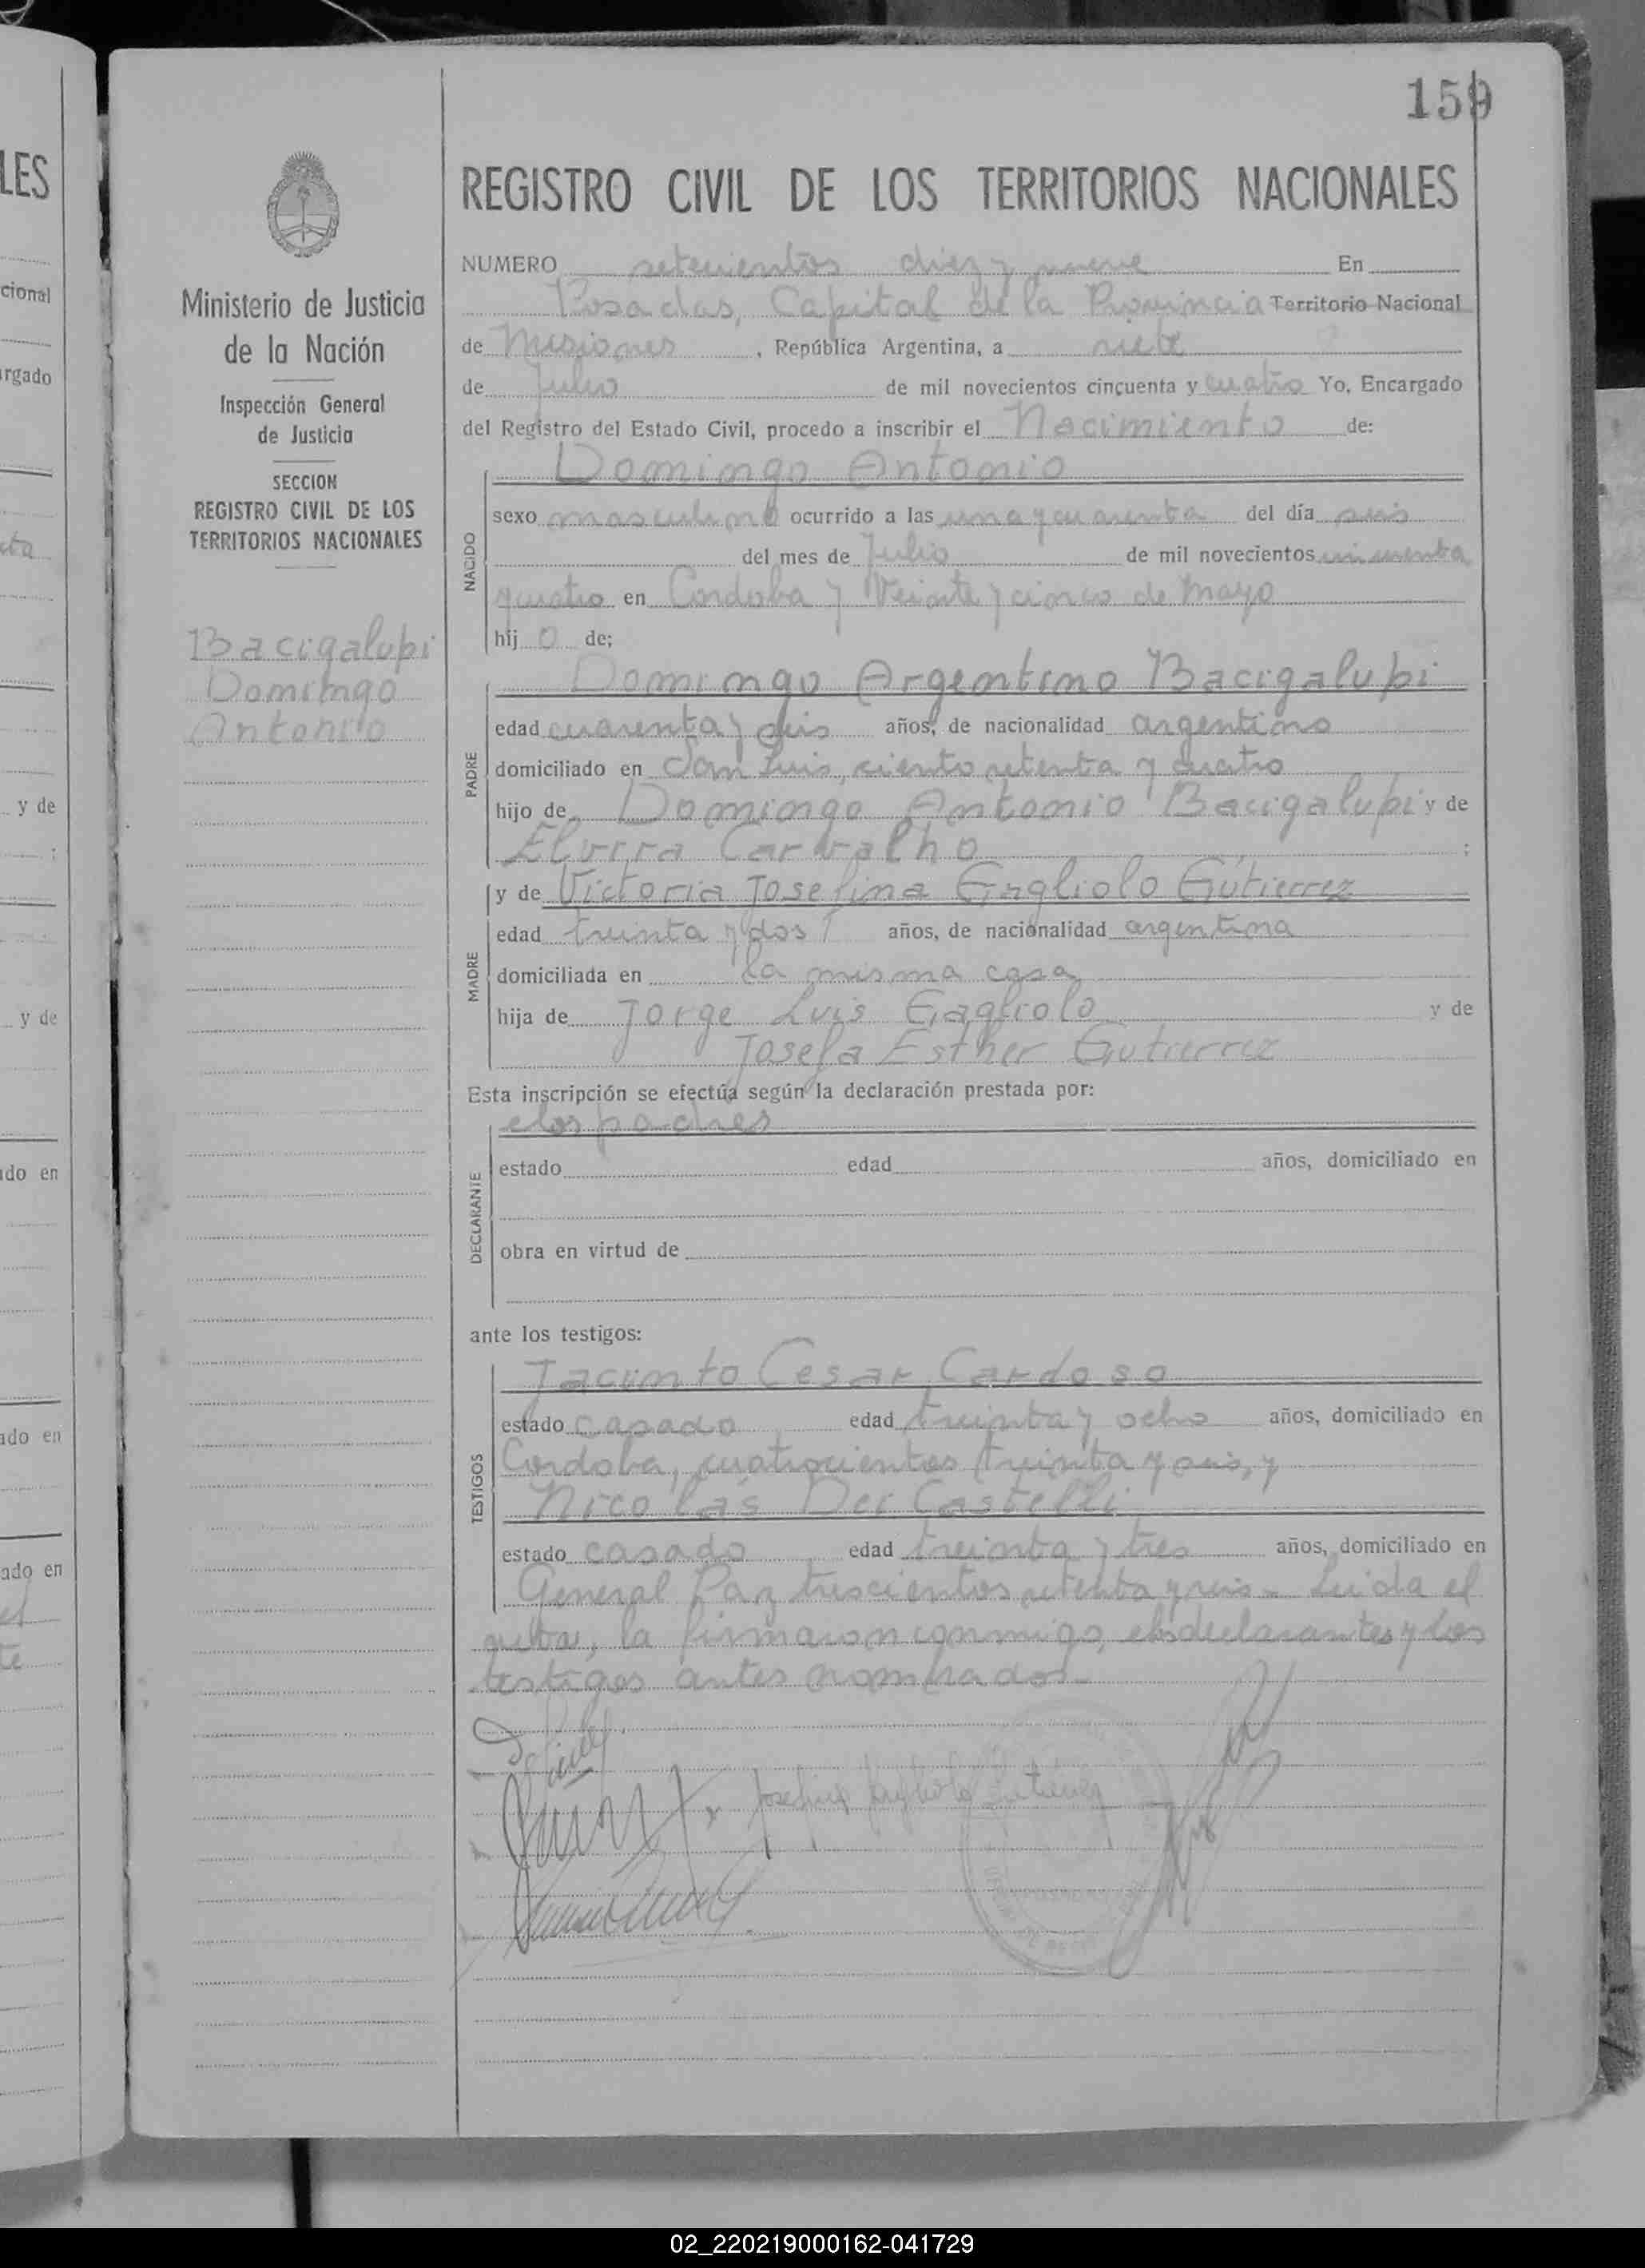 159
LES
cional
rgado
y de
y de
do en
ado en
ado en
Ministerio de Justicia
de la Nación
Inspección General
de Justicia
SECCION
REGISTRO CIVIL DE LOS
TERRITORIOS NACIONALES
Bacigalupi
Domingo
Antonio
REGISTRO CIVIL DE LOS TERRITORIOS NACIONALES
NUMERO setecientos diez y nueve En
Posadas, Capital de la Provincia Territorio Nacional
de Misiones, República Argentina, a siete
de Julio de mil novecientos cincuenta y cuatro Yo, Encargado
del Registro del Estado Civil, procedo a inscribir el Nacimiento de:
NACIDO
Domingo Antonio
sexo masculino ocurrido a las una y cuarenta del día seis
del mes de Julio de mil novecientos cincuenta
y cuatro en Cordoba y Veinte y cinco de Mayo
hij o de;
PADRE
Domingo Argentino Bacigalupi
edad cuarenta y seis años, de nacionalidad argentino
domiciliado en San Luis, ciento setenta y cuatro
hijo de Domingo Antonio Bacigalupi y de
Elvira Carvalho ;
MADRE
y de Victoria Josefina Gagliolo Gutierrez
edad treinta y dos años, de nacionalidad argentina
domiciliada en la misma casa
hija de Jorge Luis Gagliolo y de
Josefa Esther Gutierrez
Esta inscripción se efectúa según la declaración prestada por:
DECLARANTE
los padres
estado edad años, domiciliado en
obra en virtud de
ante los testigos:
TESTIGOS
Jacinto Cesar Cardoso
estado casado edad treinta y ocho años, domiciliado en
Cordoba, cuatrocientos treinta y seis, y
Nicolas Dei Castelli
estado casado edad treinta y tres años, domiciliado en
General Paz trescientos setenta y seis - Leida el
acta, la firmaron conmigo, los declarantes y los
testigos antes nombrados.-
Josefina Gagliolo Gutierrez
02_220219000162-041729